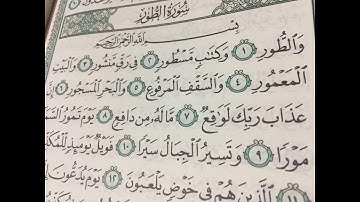 سُورَةُ الطُّورِ
بِسْمِ اللَّهِ الرَّحْمَٰنِ الرَّحِيمِ
وَالطُّورِ ١ وَكِتَابٍ مَسْطُورٍ ٢ فِي رَقٍّ مَنْشُورٍ ٣ وَالْبَيْتِ
الْمَعْمُورِ ٤ وَالسَّقْفِ الْمَرْفُوعِ ٥ وَالْبَحْرِ الْمَسْجُورِ ٦ إِنَّ
عَذَابَ رَبِّكَ لَوَاقِعٌ ٧ مَا لَهُ مِنْ دَافِعٍ ٨ يَوْمَ تَمُورُ
مَوْرًا ٩ وَتَسِيرُ الْجِبَالُ سَيْرًا ١٠ فَوَيْلٌ يَوْمَئِذٍ
١١ الَّذِينَ هُمْ فِي خَوْضٍ يَلْعَبُونَ ١٢ يَوْمَ يُدَعُّونَ